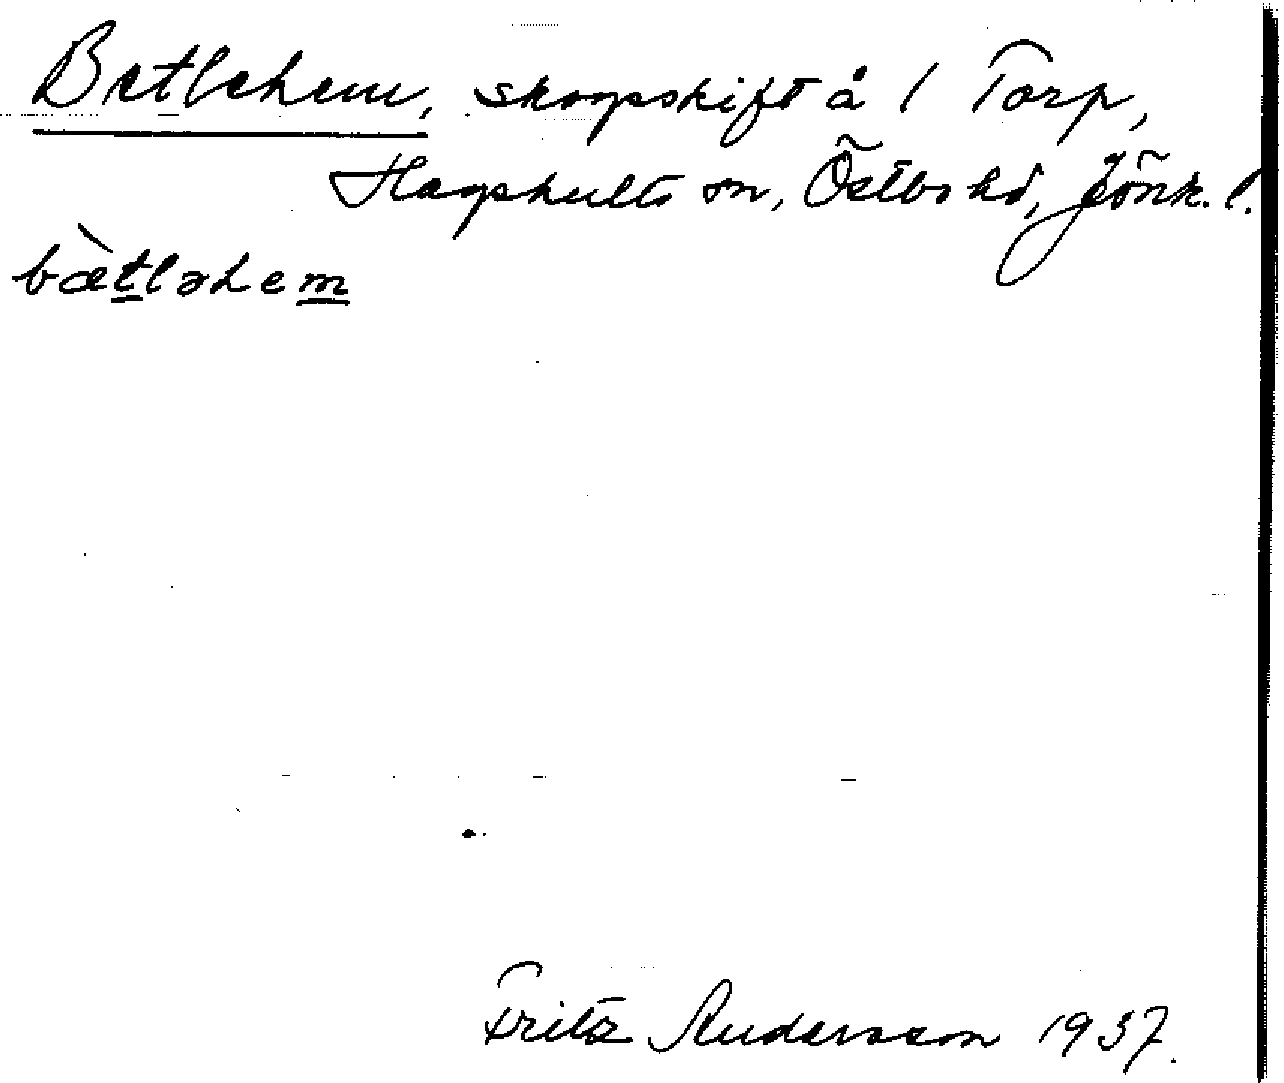 Betlehem, skogsskift å 1 Torp,
Hagshults sn, Östbo hd, Jönk. l.
bætləhem
Fritz Andersson 1937.